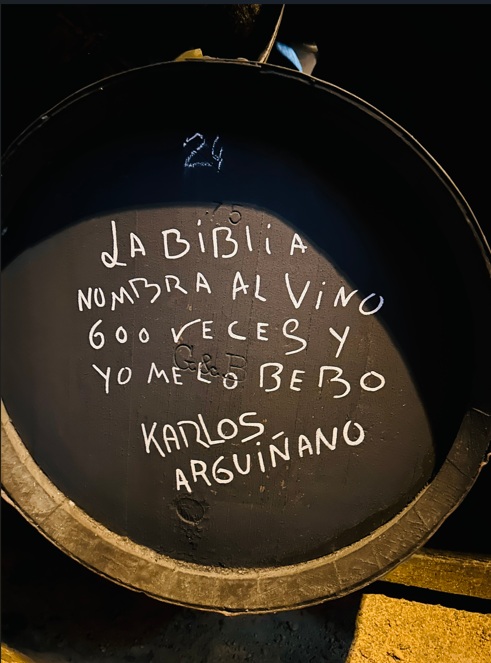 24
75
LA BiBLiA
NOMBRA AL ViNO
600 VECES Y
G&B
YO ME LO BEBO
KARLOS
ARGUiÑANO